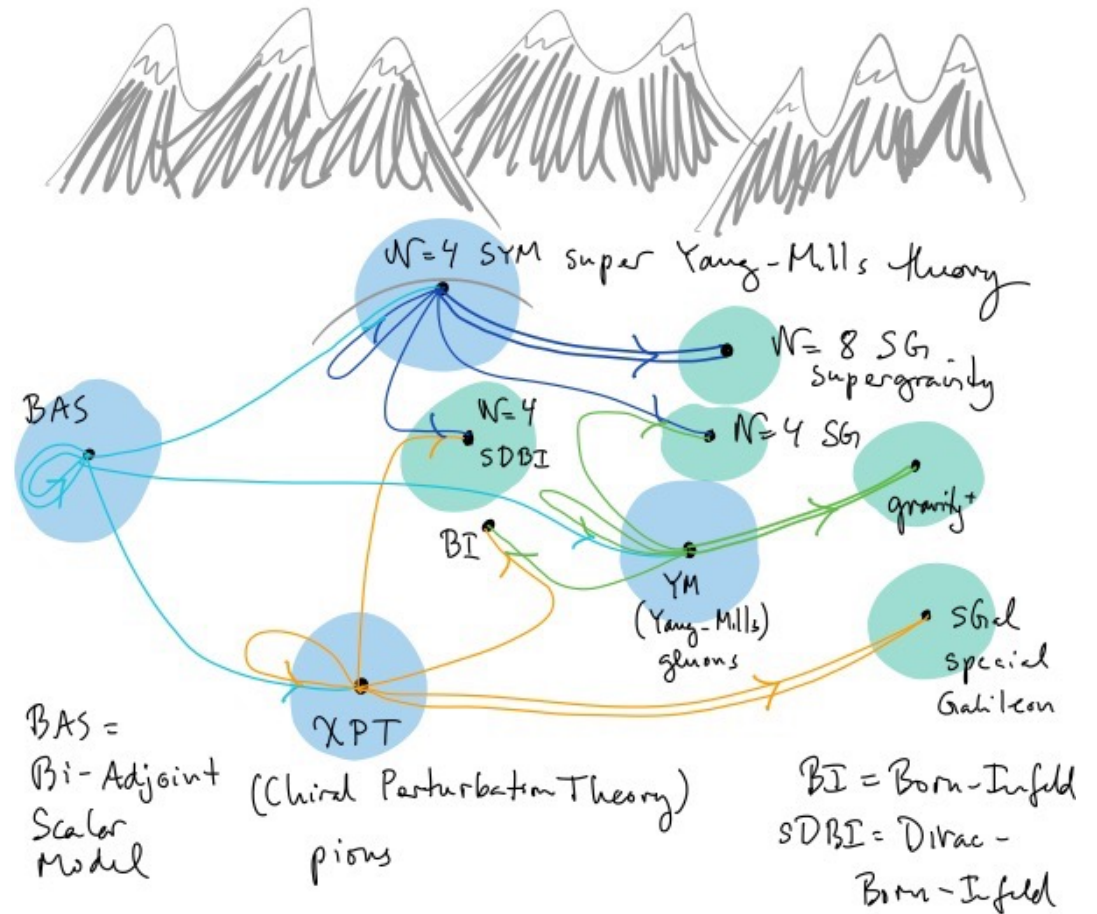 N=4 SYM super Yang-Mills theory
N=8 SG
supergravity
BAS
N=4
SDBI
N=4 SG
gravity+
BI
YM
(Yang-Mills)
gluons
SGal
special
Galileon
χPT
(Chiral Perturbation Theory)
pions
BAS =
Bi-Adjoint
Scalar
Model
BI = Born-Infeld
SDBI = Dirac-
Born-Infeld